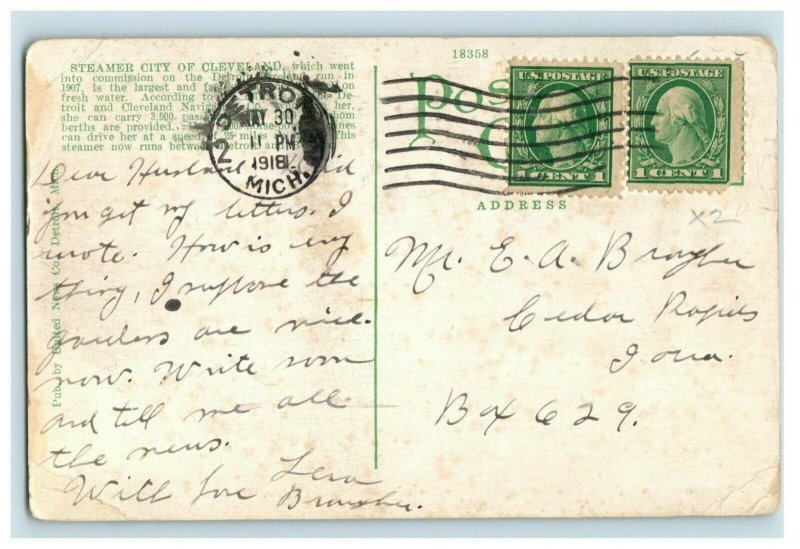 18358
STEAMER CITY OF CLEVELAND, which went
into commission on the Detroit run in
1907, is the largest and on
fresh water. According to De-
troit and Cleveland Navigation her,
she can carry 3,500 whom
berths are provided.
can drive her at a speed of 25 miles This
steamer now runs between Detroit and
Pub. by United News Co., Detroit, Mich.
DETROIT
MAY 30
11 PM
1918
MICH.
2
U.S. POSTAGE
1 CENT 1
U.S. POSTAGE
1 CENT 1
Post
ADDRESS
X2
Dear Husband did
you get my letters. I
wrote. How is every
thing, I suppose the
gardens are nice
now. Write soon
and tell me all
the news.
With love
Mr. E. A.
Cedar Rapids
Iowa.
Box 629.